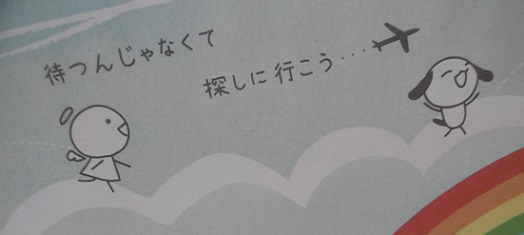 待つんじゃなくて
探しに行こう・・・